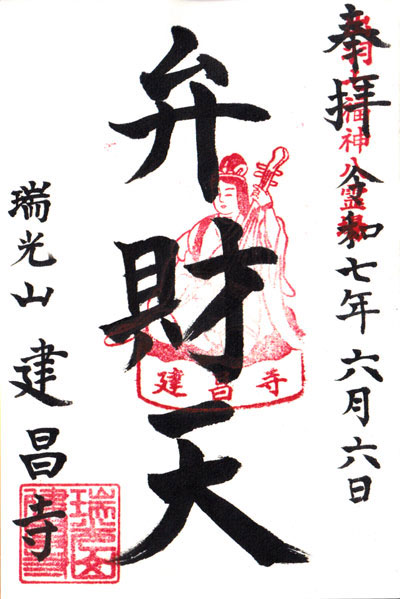 奉拝 令和七年六月六日
七福神八霊場
弁財天
建昌寺
瑞光山 建昌寺